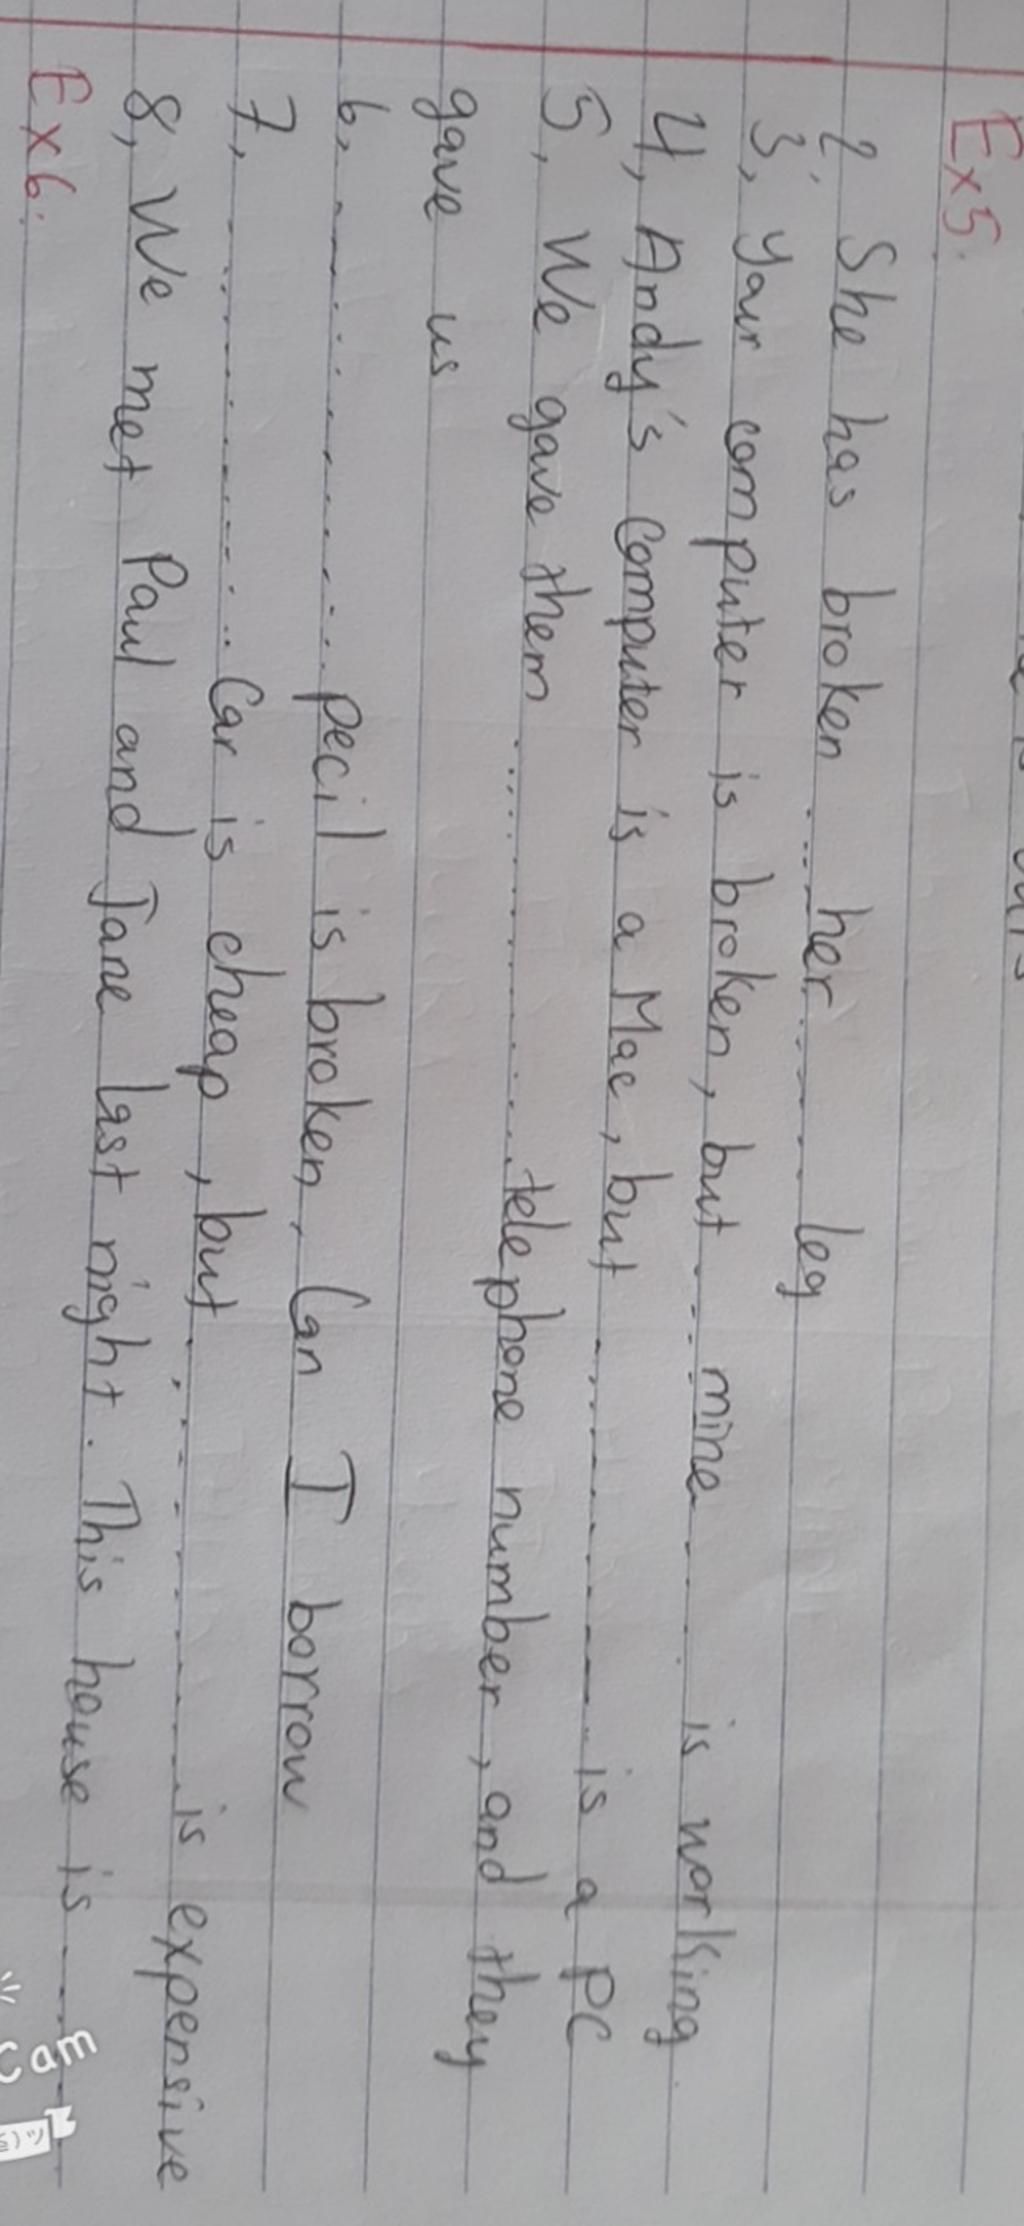 Ex5:
2. She has broken .....her......... leg
3, Your computer is broken, but ..... mine ........ is working.
4, Andy's computer is a Mac, but ................. is a PC
5, We gave them ........................ telephone number, and they
gave us
6, ........................ pecil is broken, Can I borrow
7, ........................ Car is cheap, but ........................ is expensive
8, We met Paul and Jane last night. This house is ........
Ex6:
Cam